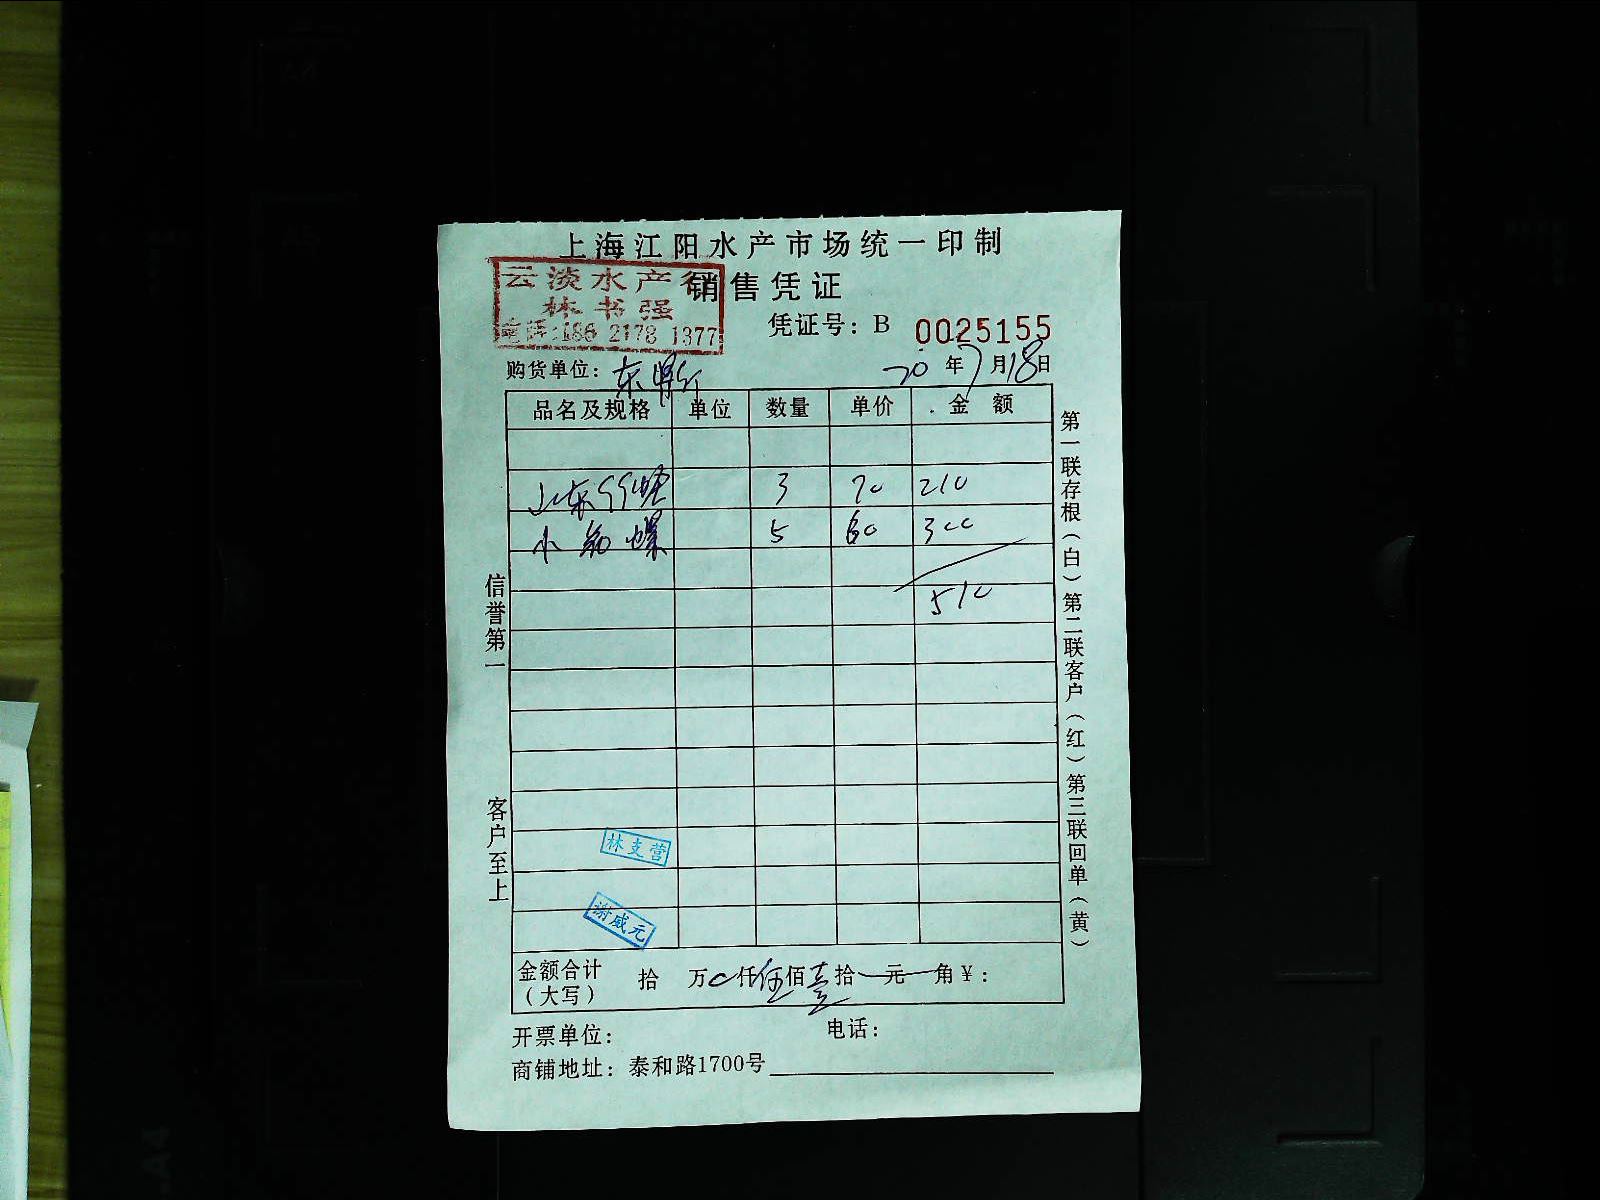 上海江阳水产市场统一印制
云淡水产行
销售凭证
林书强
凭证号：B 0025155
电话:186 2178 1377
购货单位：东
20年7月18日
品名及规格 单位 数量 单价 金额
山东 3 70 210
小 螺 5 60 300
510
信誉第一
客户至上
第一联存根（白）第二联客户（红）第三联回单（黄）
林支营
谢威元
金额合计（大写） 拾 万0仟伍佰壹拾 元 角￥：
开票单位： 电话：
商铺地址：泰和路1700号